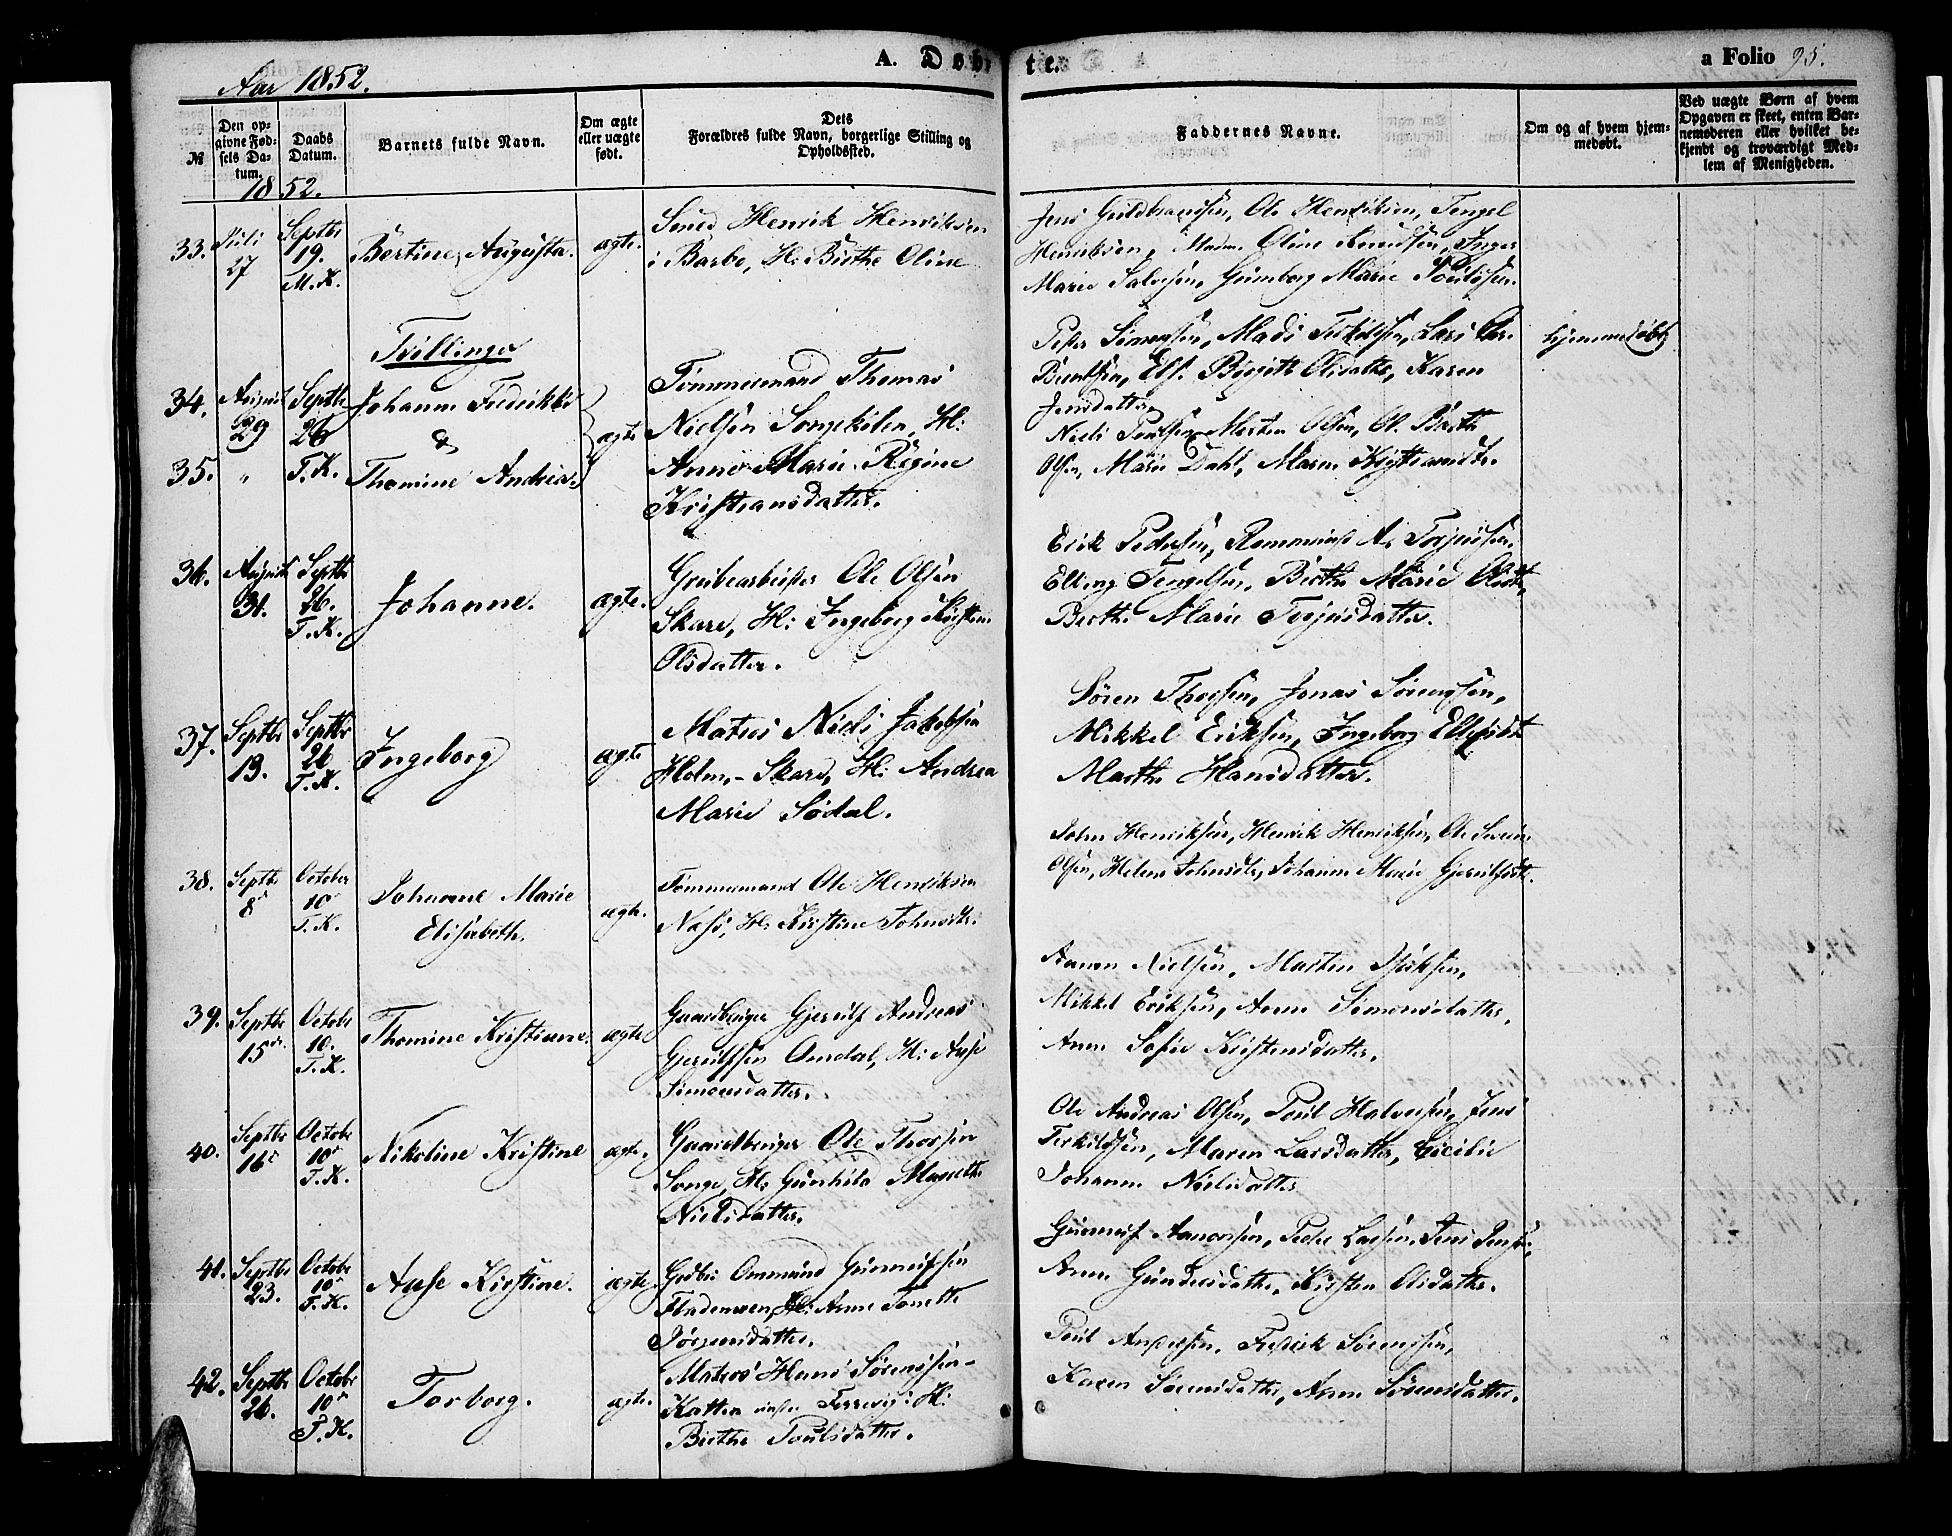 Aar 1852.
A. Døbte.
a Folio 95.
№
Den opgivne Fødsels Datum.
Daabs Datum.
Barnets fulde Navn.
Om ægte eller uægte født.
Dets Forældres fulde Navn, borgerlige Stilling og Opholdssted.
Faddernes Navne.
Om og af hvem hjemmedøbt.
Ved uægte Børn af hvem Opgaven er skeet, enten Barnemoderen eller hvilket bekjendt og troværdigt Medlem af Menigheden.
1852.
33. Juli 27 Septbr 19. M.K. Bertine Augusta. ægte.
Smed Henrik Henriksen
i Barbo, H: Birthe Oline
Ole Henriksen, Tengel
Henriksen, Madm. Oline Knudsen, Inger
Marie Salvesen, Gunborg Marie
Tvillinger
34. August 29 Septbr 26 T.K. Johanne Fredrikke
&
35. " Thomine Andrea. ægte
Tømmermand Thomas
Nielsen Songekilen, H:
Anne Marie Regine
Kristiansdatter.
Peder Simonsen, Mads Terkelsen, Lars
Berntsen, Els. Birgith Olsdatter, Karen
Jensdatter
Niels Poulsen Morten Olsen, Ol. Berth
Olsen, Marie Dahl, Maren
hjemmedøbt
36. August 31. Septbr 26. T.K. Johanne. ægte.
Grubearbeider Ole Olsen
Skare, H: Ingeborg Kirstine
Olsdatter.
Erik Pedersen, A. Torjussen,
Elling Tengelsen, Birthe Marie Olsdtr,
Berthe Marie Torjusdatter.
37. Septbr 13. Septbr 26 T.K. Ingeborg ægte
Matros Niels Jakobsen
Holm, - Skare, H: Andrea
Marie Sødal.
Søren Thorsen, Jonas Sørensen,
Mikkel Eriksen, Ingeborg Ellefsdtr
Marthe Hansdatter.
38. Septbr 8de October 10de T.K. Johanne Marie
Elisabeth. ægte.
Tømmermand Ole Henriksen
Næs, H: Kirstine Johnsdtr.
John Henriksen, Henrik Henriksen, Ole Svein
Olsen, Helene Johnsdtr, Johanne Marie
39. Septbr 15de. Octobr 10. T.K. Thomine Kristiane. ægte
Gaardbruger Gjerulf Andreas
Gjerulfsen Omdal, H: Aase
Simonsdatter.
Aanon Nielsen, Martin
Mikkel Eriksen, Anne Simonsdatter,
Anne Sofie Kristensdatter.
40. Septbr 16de Octobr 10de T.K. Nikoline Kristine ægte.
Gaardbruger Ole Thorsen
Songe, H: Gunhild
Nielsdatter.
Ole Andreas Olsen, Poul Halvorsen, Jens
Terkildsen, Maren Larsdatter, Cecilie
Johanne Nielsdatter
41. Septbr 23. Octobr 10de T.K. Aase Kirstine. ægte
Ommund Gunnulfsen
Flademoen, H: Anne Tonette
Jørgensdatter.
Gunnulf Aanonsen, Peder Larsen, Jens Jensen,
Anne Gundersdatter, Kirsten Olsdatter.
42. Septbr 26. Octobr 10de T.K. Torborg. ægte.
Matros Hans Sørensen
H:
Birthe Poulsdatter.
Poul Andersen, Fredrik Sørensen,
Karen Sørensdatter, Anne Sørensdatter.